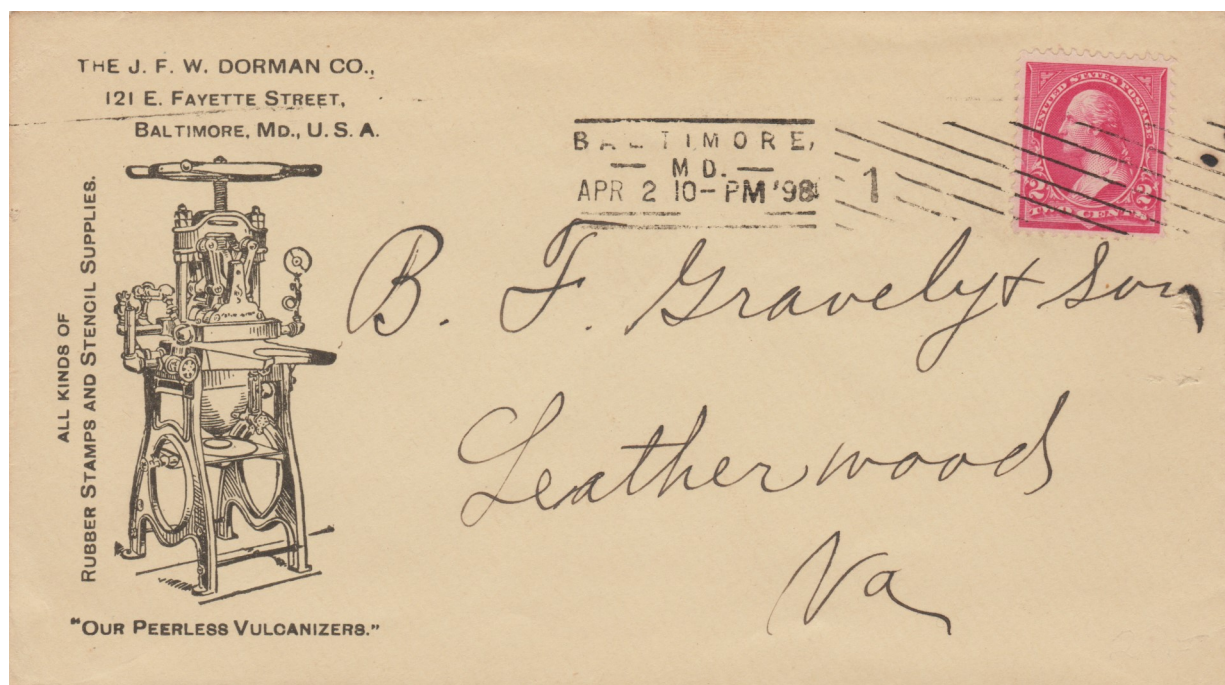 THE J. F. W. DORMAN CO.,
121 E. FAYETTE STREET,
BALTIMORE, MD., U. S. A.
ALL KINDS OF
RUBBER STAMPS AND STENCIL SUPPLIES.
"OUR PEERLESS VULCANIZERS."
BALTIMORE,
MD.
APR 2 10-PM '98
1
UNITED STATES POSTAGE
2 2
TWO CENTS
B. F. Gravely & Son
Leatherwood
Va